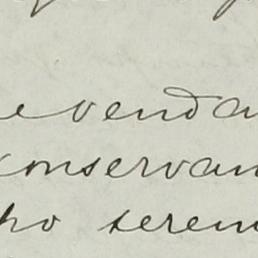 e venda
conservan
ho serem